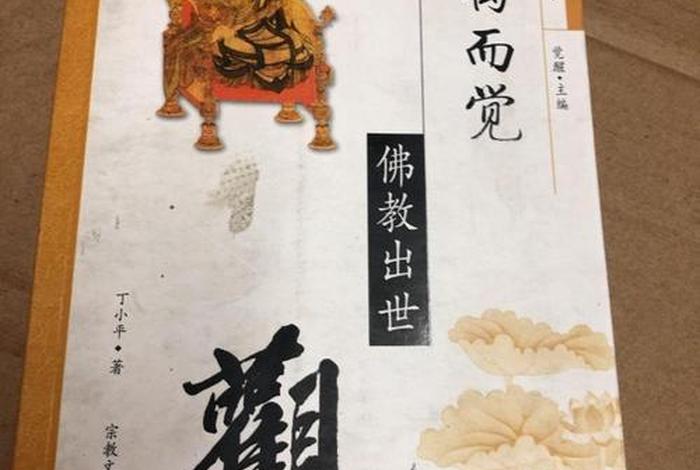 而觉
觉醒·主编
佛教出世
觀
丁小平·著
宗教